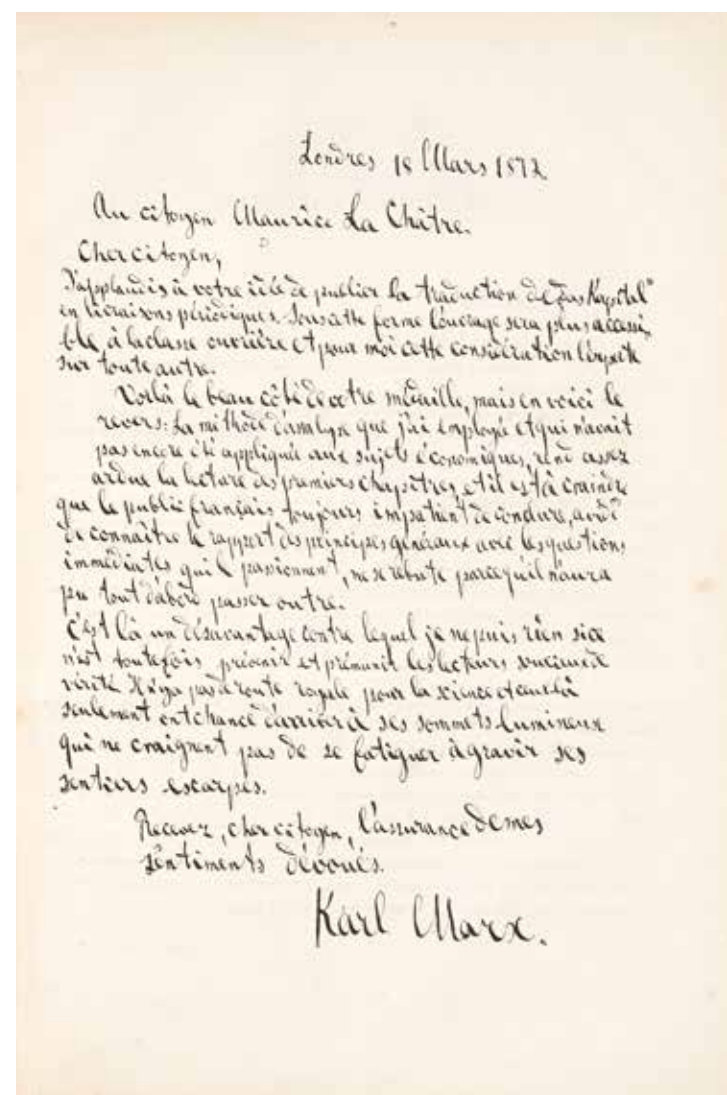 Londres 18 Mars 1872
Au citoyen Maurice La Châtre.
Cher citoyen,
J'applaudis à votre idée de publier la traduction de „Das Kapital"
en livraisons périodiques. Sous cette forme l'ouvrage sera plus accessi,
ble à la classe ouvrière et pour moi cette considération l'emporte
sur toute autre.
Voilà le beau côté de votre médaille, mais en voici le
revers: La méthode d'analyse que j'ai employée et qui n'avait
pas encore été appliquée aux sujets économiques, rend assez
ardue la lecture des premiers chapitres, et il est à craindre
que le public français toujours impatient de conclure, avide
de connaître le rapport des principes généraux avec les questions
immédiates qui le passionnent, ne se rebute parcequ'il n'aura
pu tout d'abord passer outre.
C'est là un désavantage contre lequel je ne puis rien si ce
n'est toutefois prévenir et prémunir les lecteurs soucieux de
vérité. Il n'y a pas de route royale pour la science et ceux-là
seulement ont chance d'arriver à ses sommets lumineux
qui ne craignent pas de se fatiguer à gravir ses
sentiers escarpés.
Recevez, cher citoyen, l'assurance de mes
sentiments dévoués.
Karl Marx.